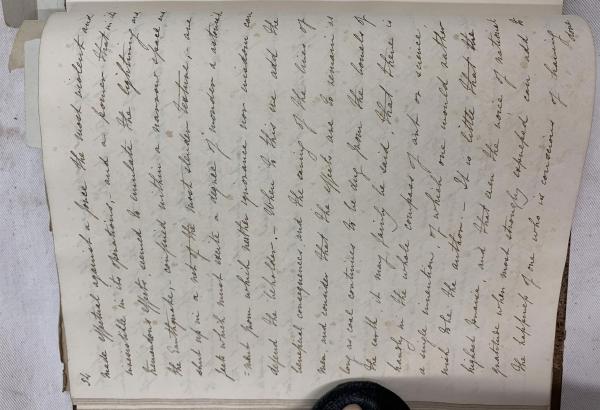 24
make effectual against a force the most violent and
irresistible in its operations, and a power that in its
tremendous effects seemed to emulate the lightning and
the earthquake, confined within a narrow space and
shut up in a net of the most slender texture, are
facts which must excite a degree of wonder & astonish
=ment from which neither ignorance nor wisdom can
defend the beholder. – When to this we add the
beneficial consequences and the saving of the lives of
men, and consider that the effects are to remain as
long as coal continues to be dug from the bowels of
the earth, it may fairly be said that there is
hardly in the whole compass of art or science
a single invention of which one would rather
wish to be the author – It is little that the
highest praise, and that even the voice of national
gratitude when most strongly expressed can add to
the happiness of one who is conscious of having
done